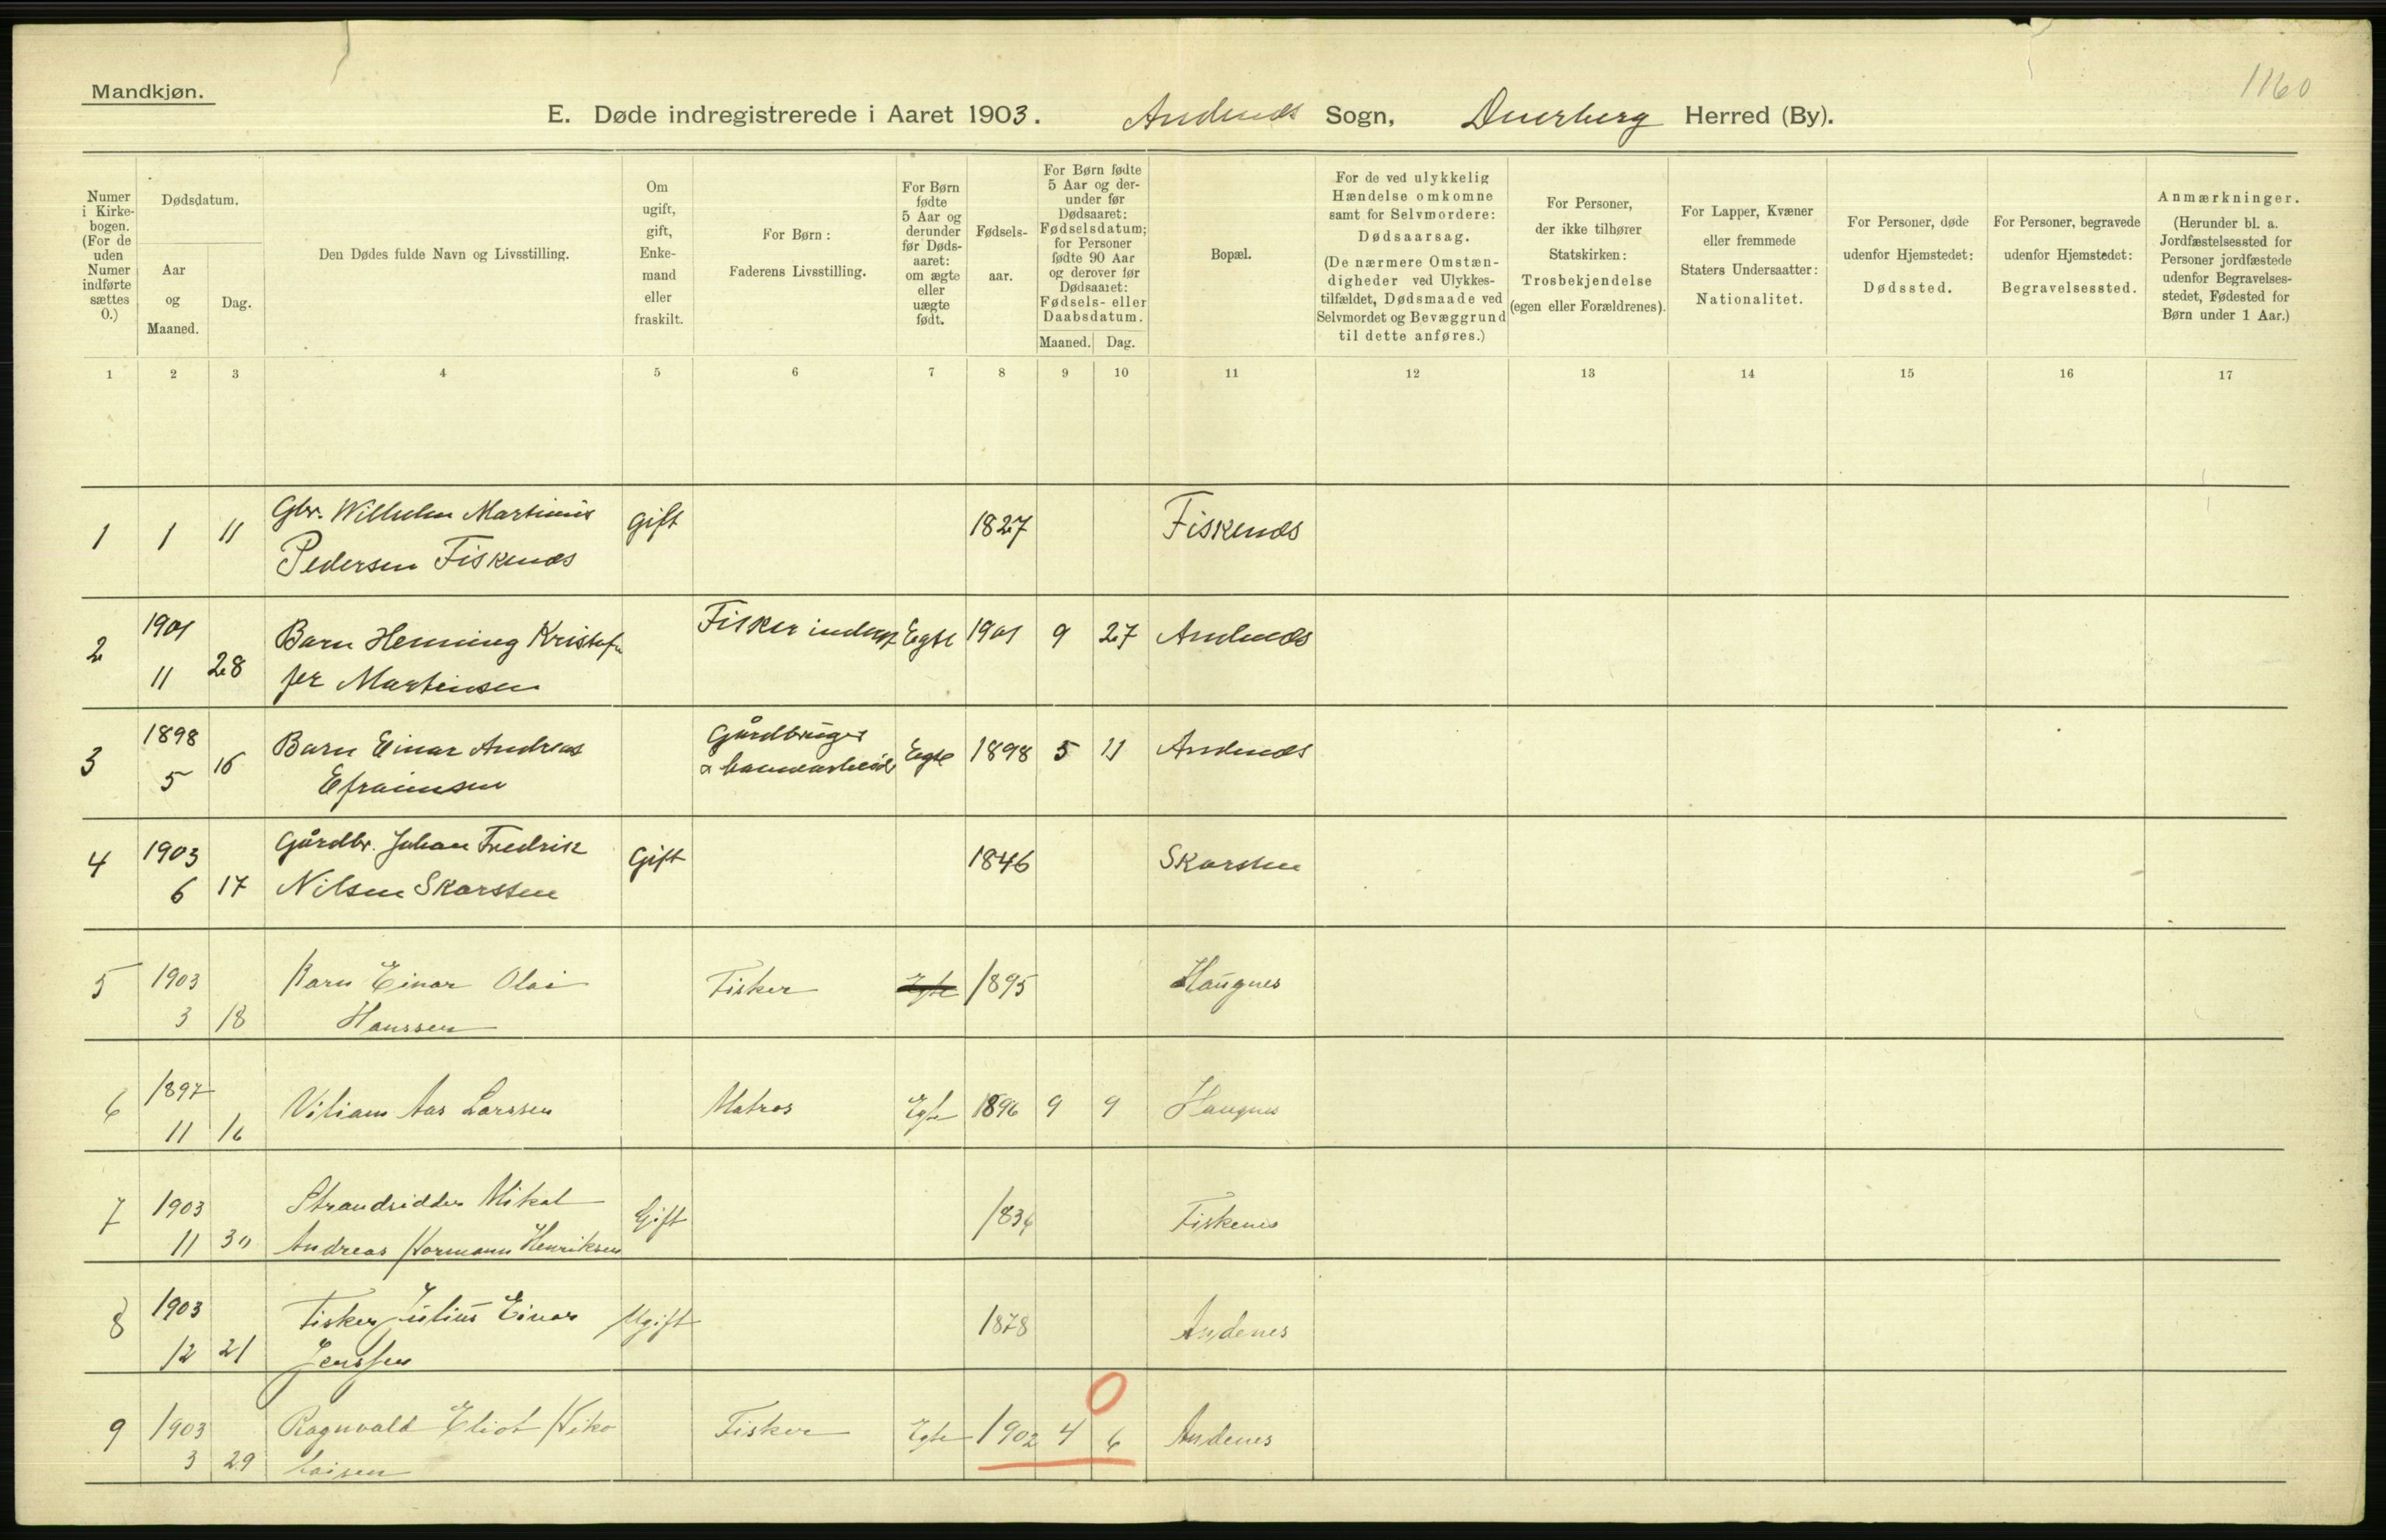 Mandkjøn.
1160
E. Døde indregistrerede i Aaret 1903. Andenæs Sogn, Dverberg Herred (By).
Numer i Kirke- bogen. (For de uden Numer indførte sættes 0.)
Dødsdatum.
Aar og Maaned.
Dag.
Den Dødes fulde Navn og Livsstilling.
Om ugift, gift, Enke- mand eller fraskilt.
For Børn: Faderens Livsstilling.
For Børn fødte 5 Aar og derunder før Døds- aaret: om ægte eller uægte født.
Fødsels- aar.
For Børn fødte 5 Aar og der- under før Dødsaaret: Fødselsdatum; for Personer fødte 90 Aar og derover før Dødsaaret: Fødsels- eller Daabsdatum.
Maaned. Dag.
Bopæl.
For de ved ulykkelig Hændelse omkomne samt for Selvmordere: Dødsaarsag. (De nærmere Omstæn- digheder ved Ulykkes- tilfældet, Dødsmaade ved Selvmordet og Bevæggrund til dette anføres.)
For Personer, der ikke tilhører Statskirken: Trosbekjendelse (egen eller Forældrenes).
For Lapper, Kvæner eller fremmede Staters Undersaatter: Nationalitet.
For Personer, døde udenfor Hjemstedet: Dødssted.
For Personer, begravede udenfor Hjemstedet: Begravelsessted.
Anmærkninger. (Herunder bl. a. Jordfæstelsessted for Personer jordfæstede udenfor Begravelses- stedet, Fødested for Børn under 1 Aar.)
1 2 3 4 5 6 7 8 9 10 11 12 13 14 15 16 17
Gbr. Wilhelm Martinus
1 1 11 gift 1827 Fiskenæs
Pedersen Fiskenæs
1901 Fisker
2 Barn Henning Kristof Egte 1901 9 27 Andenæs
11 28 fer Martinsen
1898 Gårdbruger
3 Barn Einar Andreas Egte 1898 5 11 Andenæs
5 16 Efraimsen
Gårdbr. Johan Fredrik
4 1903 Gift 1846 Skarsten
6 17 Nilsen Skarsten
5 1903 Barn Einar Olai Fisker Egte 1895 Haugnes
3 18 Hanssen
1897
6 Viliam Aas Larssen Matros Egte 1896 9 9 Haugnes
11 16
Strandsidder Mikal
7 1903 Gift Fiskenes
11 30 Andreas Normann Henriksen
8 1903 Fisker Julius Einar Ugift 1878 Andenes
12 21 Jenssen
0
9 1903 Ragnvald Eliot Niko Fisker Egte 1902 4 6 Andenes
3 29 laisen